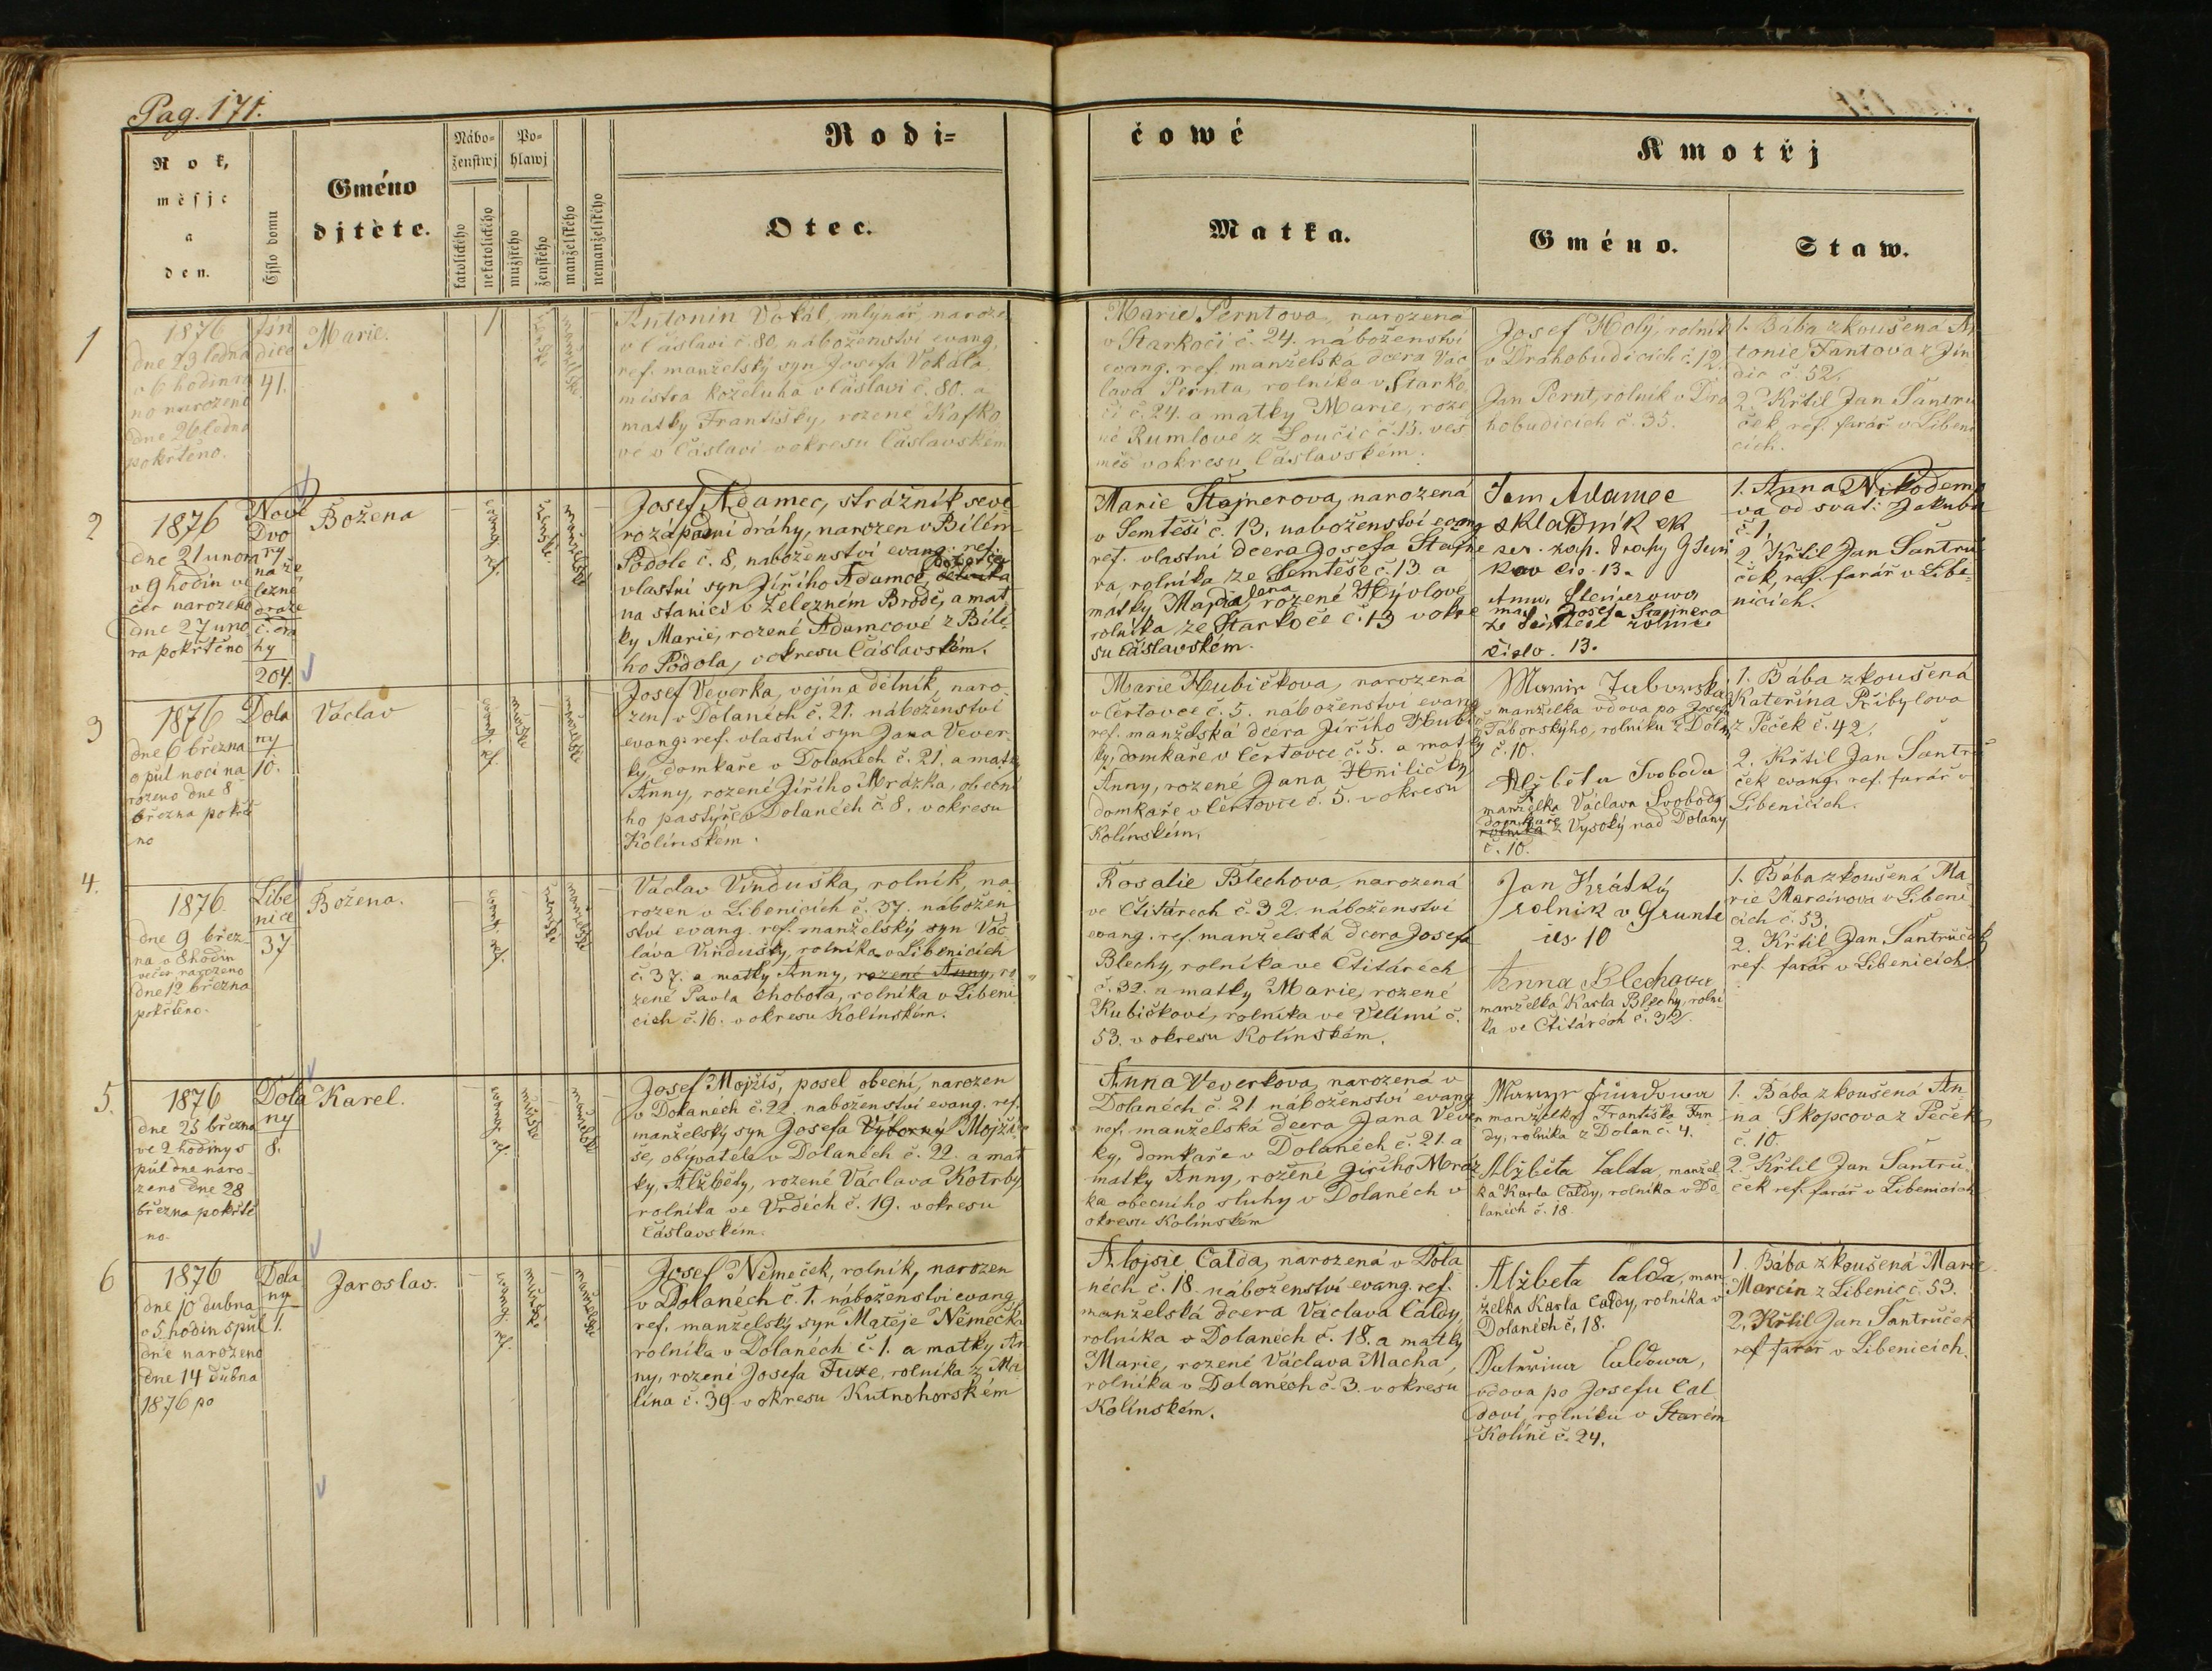 Pag. 171.
Rok,
měsjc
a
den.
Čjslo domu
Gméno
djtěte.
Nábo-
ženstwj
katolického
nekatolického
Po-
hlawj
mužského
ženského
manželského
nemanželského
Rodi-
čowé
Otec.
Matka.
Kmotřj
Gméno.
Staw.
1
1876
dne 23 ledna
o 6 hodin ra
no narozeno
dne 26 ledna
pokřtěno.
Jín
dice
41.
Marie.
ženské
manželské
Antonín Vokál, mlynář, naroze
v Čáslavi č. 80. náboženství evang.
ref. manželský syn Josefa Vokála,
mistra koželuha v Čáslavi č. 80. a
matky Františky, rozené Kafko
vé v Čáslavi v okresu Čáslavském
Marie Perntova, narozená
v Starkoči č. 24. náboženství
evang. ref. manželská dcera Vác
lava Pernta, rolníka v Starko
či č. 24. a matky Marie, roze
né Rumlové z Loučic č. 15. ves
měs v okresu Čáslavském.
Josef Holý, rolník
v Drahobudicích č. 12.
Jan Pernt, rolník v Dra
hobudicích č. 35.
1. Bába zkoušená An
tonie Fantova z Jín
dic č. 52.
2. Křtil Jan Šantrů
ček ref. farář v Libeni
cích.
2
1876
dne 21 unora
v 9 hodin ve
čer narozeno
dne 27 uno
ra pokřtěno
Nové
Dvo
ry
na že
lezné
draze
č. dra
hy
204.
Božena
evang. ref.
ženské
manželské
Josef Adamec, strážník seve
rozápadní dráhy, narozen v Bílém
Podole č. 8, náboženství evang. ref.
vlastní syn Jiřího Adamce,
na stanici v Železném Brodě, a mat
ky Marie, rozené Adamcové z Bílé
ho Podola, v okresu Čáslavském.
Marie Štajnerova, narozená
v Semtěši č. 13. náboženství evang
ref. vlastní dcera Josefa Štajne
ra, rolníka ze Semtěše č. 13 a
matky Magdaleny, rozené Hývlové
rolníka ze Starkoče č. 13 v okre
su Čáslavském.
Jan Adamec
skladník ck
ser. zap. drahy G Jeni
kov čis. 13.
Anna Steinerowa
man. Josefa Stajnera
ze Semteše rolnika
čislo. 13.
1. Anna Nikodemo
va od svat: Jakuba
č. 1,
2. Křtil Jan Šantrů
ček, ref. farář v Libe
nicích.
3
1876
dne 6 března
o půl noci na
rozeno dne 8
března pokřtě
no
Dola
ny
10.
Václav
evang. ref.
mužské
manželské
Josef Veverka, vojín a dělník, naro-
zen v Dolanech č. 21. náboženství
evang. ref. vlastní syn Jana Vever-
ky, domkaře v Dolanech č. 21. a matky
Anny, rozené Jiřího Mrázka, obecní
ho pastýře v Dolanech č. 8. v okresu
Kolínském.
Marie Hubičkova, narozená
v Čertovce č. 5. náboženství evang
ref. manželská dcera Jiřího Hubič
ky, domkaře v Čertovce č. 5. a matky
Anny, rozené Jana Hniličky
domkaře v Čertovce č. 5. v okresu
Kolínském,
Marie Taborska
manželka vdova po Josefu
Táborskýho, rolníku z Dolan
č. 10.
Alžběta Svoboda
manželka Václava Svobody
domkaře
rolníka z Vysoký nad Dolany
č. 10.
1. Bába zkoušená
Kateřina Přibylova
z Peček č. 42.
2. Křtil Jan Šantrů
ček evang. ref. farář v
Libenicích.
4.
1876.
dne 9 břez-
na o 8 hodin
večer narozeno
dne 12 března
pokřtěno.
Libe
nice
37
Božena.
evang. ref.
ženské
manželské
Václav Vinduška, rolník, na
rozen v Libenicích č. 37. nábožen
ství evang. ref. manželský syn Vác
lava Vindušky, rolníka v Libenicích
č. 37. a matky Anny, rozené Anny, ro
zené Pavla Chobota, rolníka v Libeni
cích č. 16. v okresu Kolínském.
Rosalie Blechova, narozená
ve Ctitárech č. 32. náboženství
evang. ref. manželská dcera Josefa
Blechy, rolníka ve Ctitárech
č. 32. a matky Marie, rozené
Kubičkové, rolníka ve Velimi č.
53. v okresu Kolínském.
Jan Krátký
rolnik v Gruntě
čis 10
Anna Blechova
manželka Karla Blechy, rolní
ka ve Ctitárech č. 32.
1. Bába zkoušená Ma
rie Marcinova v Libeni
cích č. 53,
2. Křtil Jan Šantrůček
ref. farář v Libenicích
5.
1876
dne 25 března
ve 2 hodiny s
půl dne naro-
zeno dne 28
března pokřtě
no.
Dola
ny
8.
Karel.
evang. ref.
mužské
manželské
Josef Mojžíš, posel obecní, narozen
v Dolanech č. 22. náboženství evang. ref.
manželský syn Josefa Vyborny Mojží
še, obývatele v Dolanech č. 22. a mat
ky, Alžběty, rozené Václava Kotrby,
rolníka ve Vrdech č. 19. v okresu
Čáslavském.
Anna Veverkova, narozená v
Dolanech č. 21 náboženství evang
ref. manželská dcera Jana Vever
ky, domkaře v Dolanech č. 21. a
matky Anny, rozené Jiřího Mráz
ka obecního sluhy v Dolanech v
okresu Kolínském
manželka Františka Fun
dy, rolníka z Dolan č. 4.
Alžběta Calda, manžel
ka Karla Caldy, rolníka v Do
lanech č. 18.
1. Bába zkoušená An
na Skopcova z Peček
č. 10.
2. Křtil Jan Šantrů
ček ref. farář v Libenicích
6
1876
dne 10 dubna
o 5 hodin s půl
dne narozeno
dne 14 dubna
1876 po
Dola
ny
1.
Jaroslav.
evang. ref.
mužské
manželské
Josef Němeček, rolník, narozen
v Dolanech č. 1. náboženství evang.
ref. manželský syn Matěje Němečka
rolníka v Dolanech č. 1. a matky An
ny, rozené Josefa Fuxe, rolníka z Ma
lína č. 39 v okresu Kutnohorském
Alojsie Calda, narozená v Dola
nech č. 18. náboženství evang. ref.
manželská dcera Václava Caldy,
rolníka v Dolanech č. 18. a matky
Marie, rozené Václava Macha,
rolníka v Dolanech č. 3. v okresu
Kolínském.
Alžbeta Calda, man
želka Karla Caldy, rolníka v
Dolanech č. 18.
Kateřina Caldowa,
vdova po Josefu Cal
dovi, rolníku v Starém
Kolíně č. 24.
1. Bába zkoušená Marie
Marcin z Libenic č. 53.
2. Křtil Jan Šantrůček
ref farář v Libenicích.